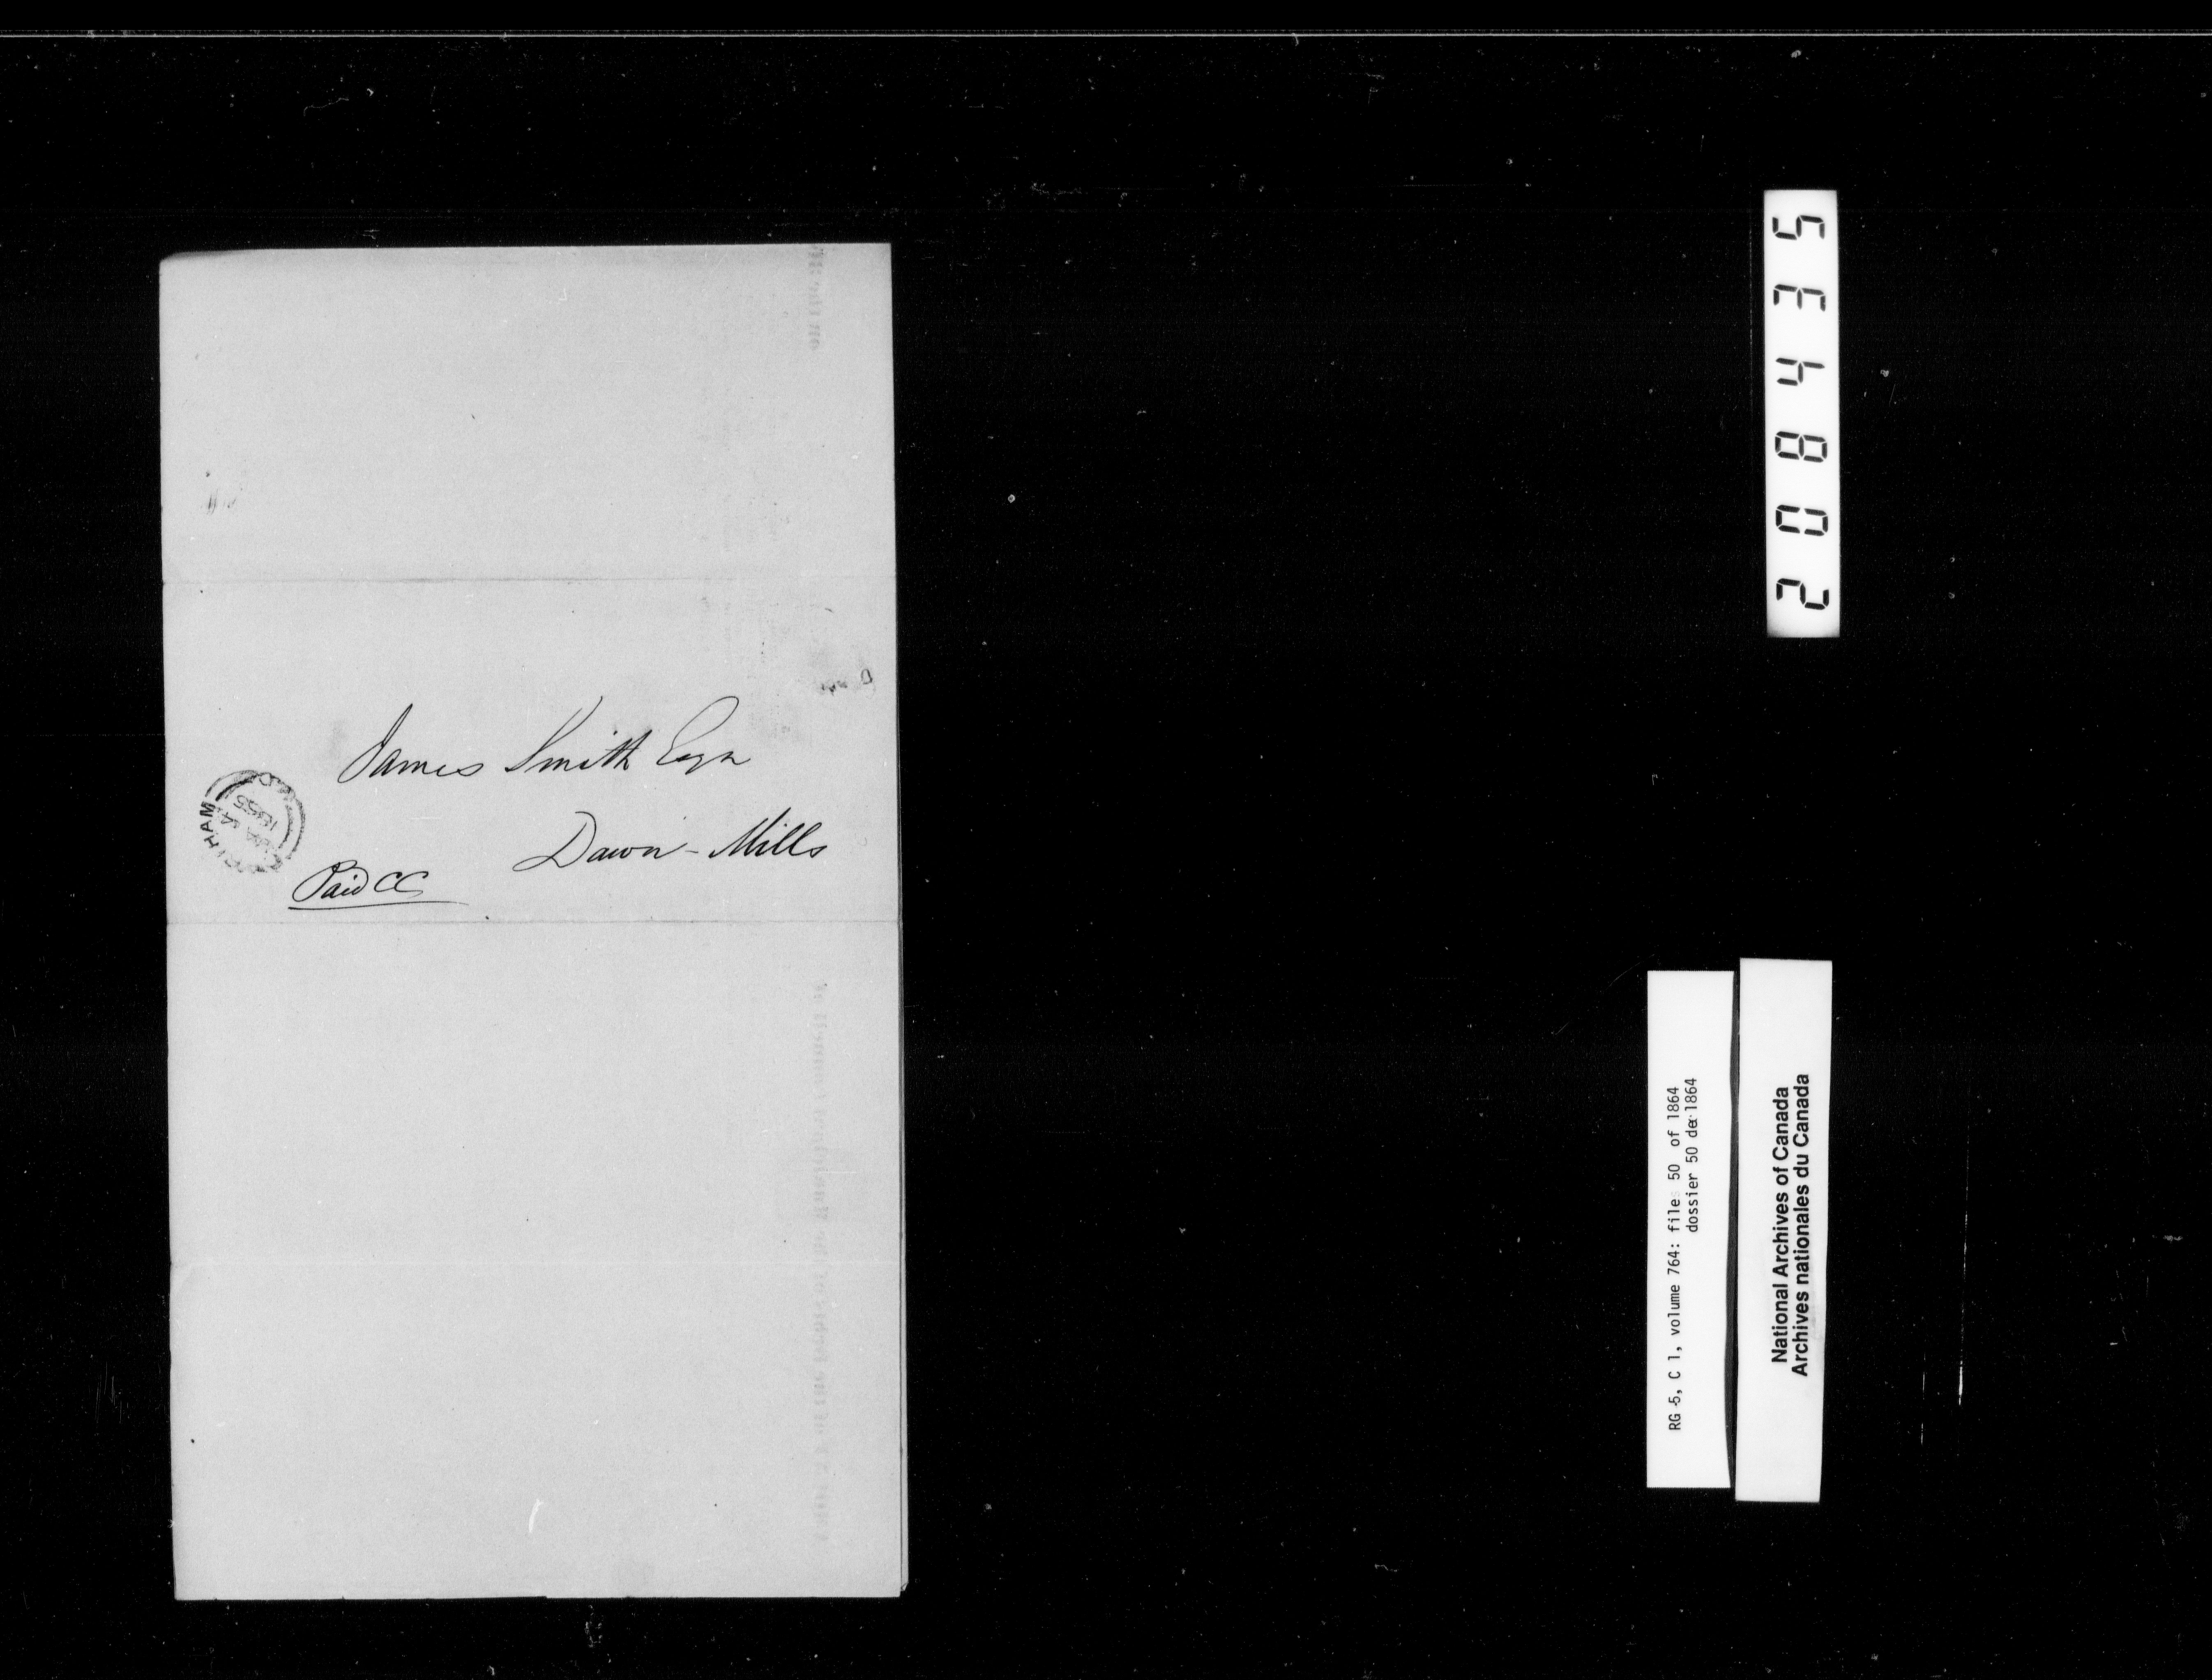 James Smith Esqr
Dawn - Mills
Paid CC
HAM
1855
208435
RG 5, C 1, volume 764: file 50 of 1864
dossier 50 de 1864
National Archives of Canada
Archives nationales du Canada